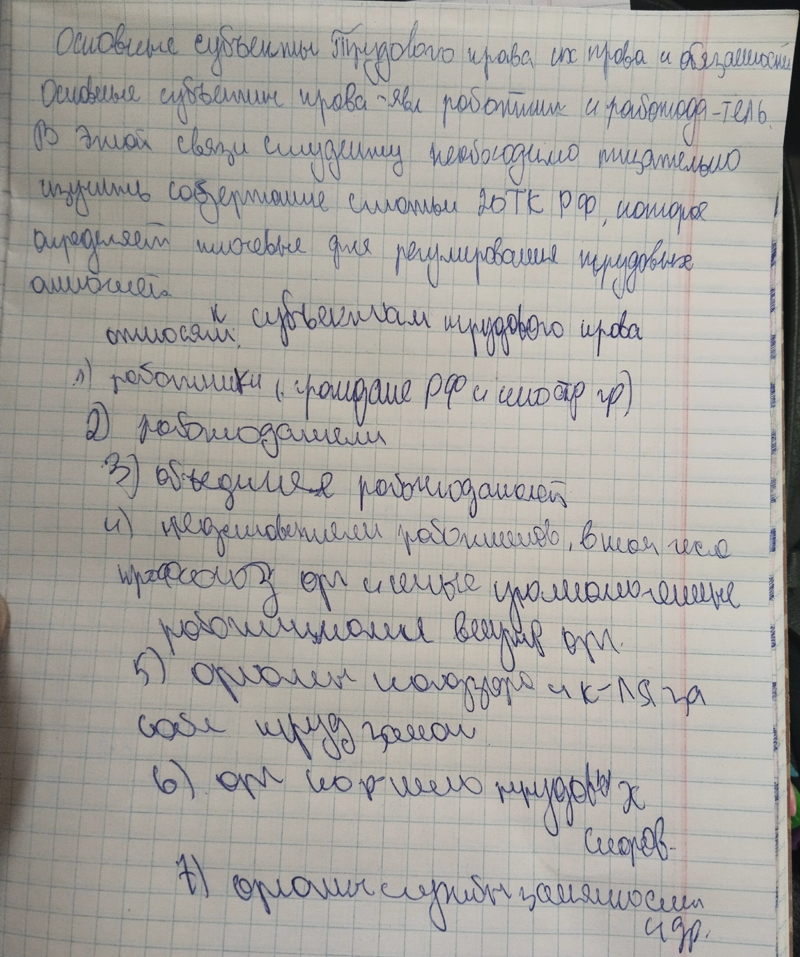 Основные субъекты Трудового права, их права и обязанности
Основные субъекты права - явл работник и работода-тель.
В этой связи студенту необходимо тщательно
изучить содержание статьи 20 ТК РФ, которая
определяет ключевые для регулирования трудовых
относят к субъектам трудового права
1) работники (граждане РФ и иностр гр)
2) работодатели
3) объединея работодателей
4) представители работников, в том числе
профсоюз орг и иные уполномоченные
работниками внутри орг.
5) органы надзора и к-ля за
собл труд закон
6) орг по р-нию трудовых
споров.
7) органы службы занятости
и др.